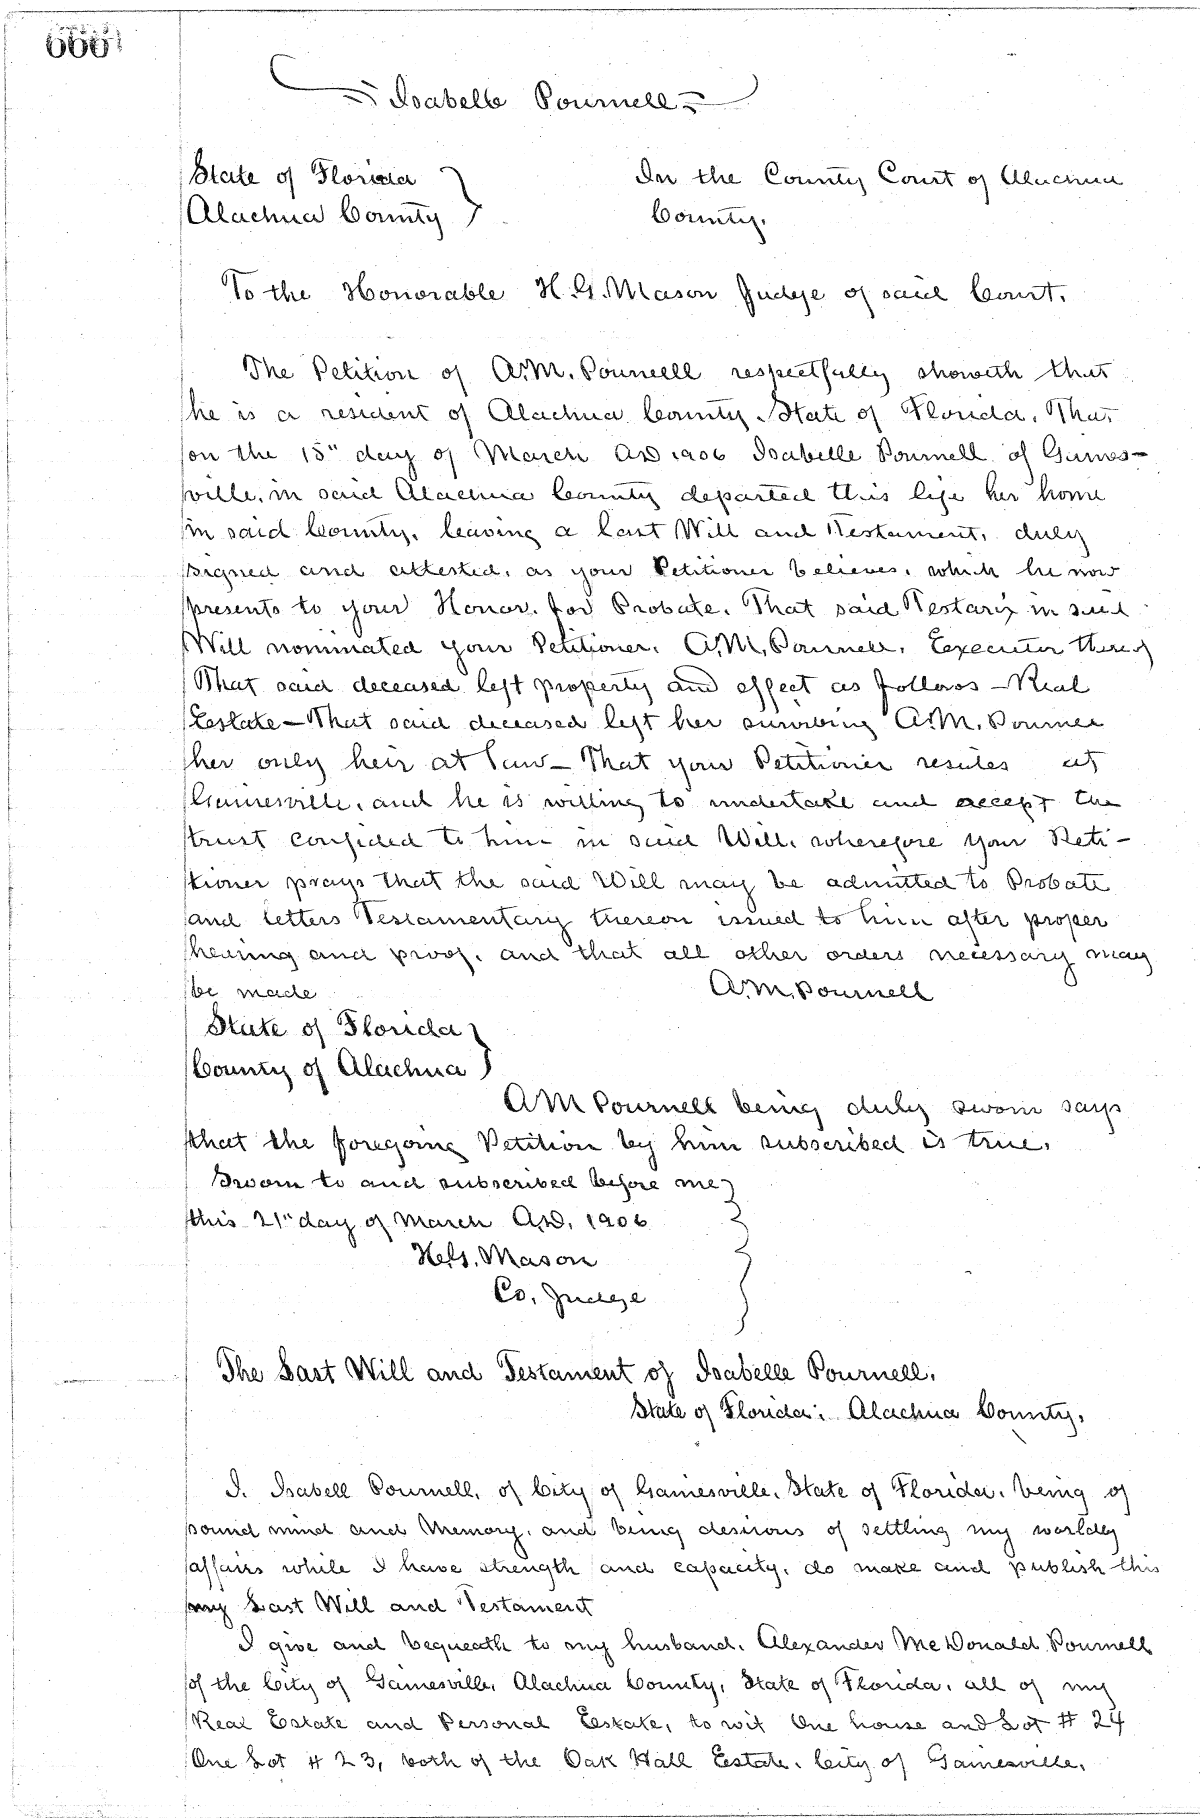 666
Isabelle Pournell
State of Florida
Alachua County
In the County Court of Alachua
County.
To the Honorable H.G. Mason Judge of said Court.
The Petition of A.M. Pournell respectfully showeth that
he is a resident of Alachua County State of Florida. That
on the 15" day of March AD 1906 Isabelle Pournell of Gaines-
ville, in said Alachua County departed this life her home
in said County, leaving a last Will and Testament, duly
signed and attested, as your Petitioner believes, which he now
presents to your Honor, for Probate. That said Testarix in said
Will nominated your Petitioner, A.M. Pournell, Executor thereof
That said deceased left property and effect as follows - Real
Estate - That said deceased left her surviving A.M. Pournell
her only heir at law - That your Petitioner resides at
Gainesville, and he is willing to undertake and accept the
trust confided to him in said Will, wherefore your Peti-
tioner prays that the said Will may be admitted to Probate
and letters Testamentary thereon issued to him after proper
hearing and proof, and that all other orders necessary may
be made
A.M. Pournell
State of Florida
County of Alachua
AM Pournell being duly sworn says
that the foregoing Petition by him subscribed is true.
Sworn to and subscribed before me
this 21" day of March A.D. 1906
H.G. Mason
Co. Judge
The Last Will and Testament of Isabelle Pournell.
State of Florida: Alachua County.
I. Isabell Pournell, of City of Gainesville, State of Florida, being of
sound mind and Memory, and being desirous of settling my worldly
affairs while I have strength and capacity, do make and publish this
my Last Will and Testament
I give and bequeath to my husband, Alexander McDonald Pournell
of the City of Gainesville, Alachua County, State of Florida, all of my
Real Estate and Personal Estate, to wit One house and Lot # 24
One Lot # 23, both of the Oak Hall Estate, City of Gainesville,